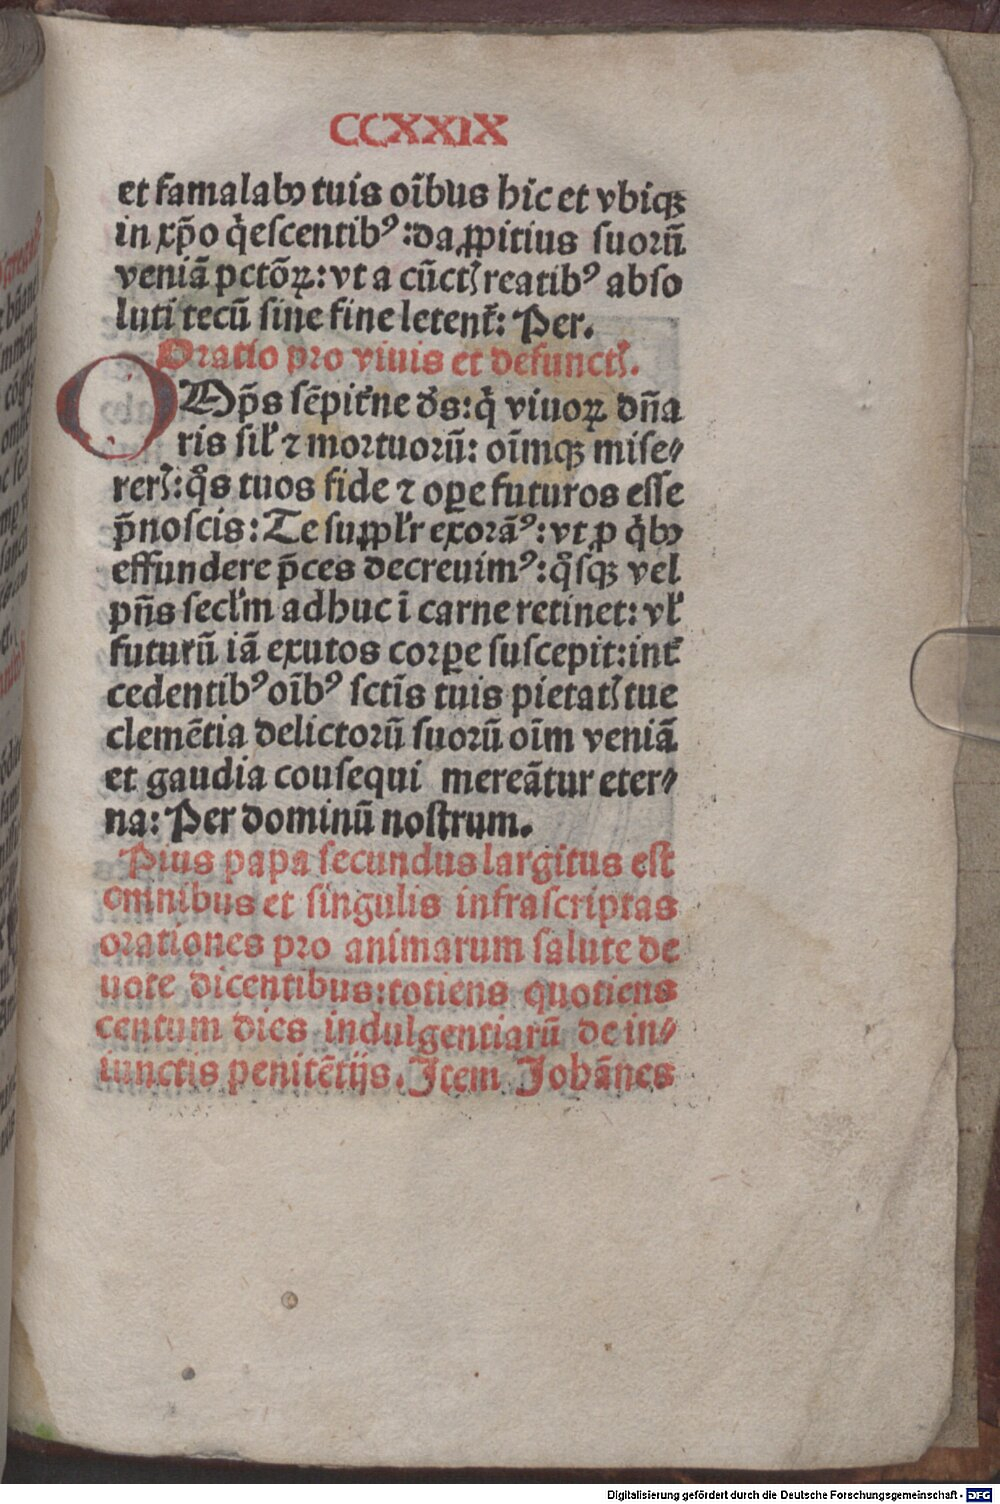 CCXXIX
et famalabꝫ tuis oı̃bus hic et vbiqꝫ
in xp̃o q̇escentibꝰ: da ꝓpitius suorũ
veniã pctõꝝ: vt a cũctꝭ reatibꝰ abso
luti tecũ sine fine letent᷑: Per.
Oratio pro viuis et defunctꝭ.
OMp̃s sẽpit᷑ne d̃s: q̇ viuoꝝ dña
ris sil᷑ ⁊ mortuorũ: oı̃mqꝫ mise⸗
rerꝭ: q̊s tuos fide ⁊ oꝑe futuros esse
p̃noscis: Te supꝓl᷑r exorãꝰ: vt ꝓ q̇bꝫ
effundere p̃ces decreuimꝰ: q̊sqꝫ vel
pñs secl᷑m adhuc ı̃ carne retinet: vl᷑
futurũ iã exutos corꝑe suscepit: int᷑
cedentibꝰ oı̃bꝰ sctı̃s tuis pietatꝭ tue
clemẽtia delictorũ suorũ oı̃m veniã
et gaudia cousequi mereãtur eter⸗
na: Per dominũ nostrum.
Pius papa secundus largitus est
omnibus et singulis infrascriptas
orationes pro animarum salute de
uote dicentibus: totiens quotiens
centum dies indulgentiarũ de in⸗
iunctis penitẽtijs. Item Johãnes
Digitalisierung gefördert durch die Deutsche Forschungsgemeinschaft - DFG